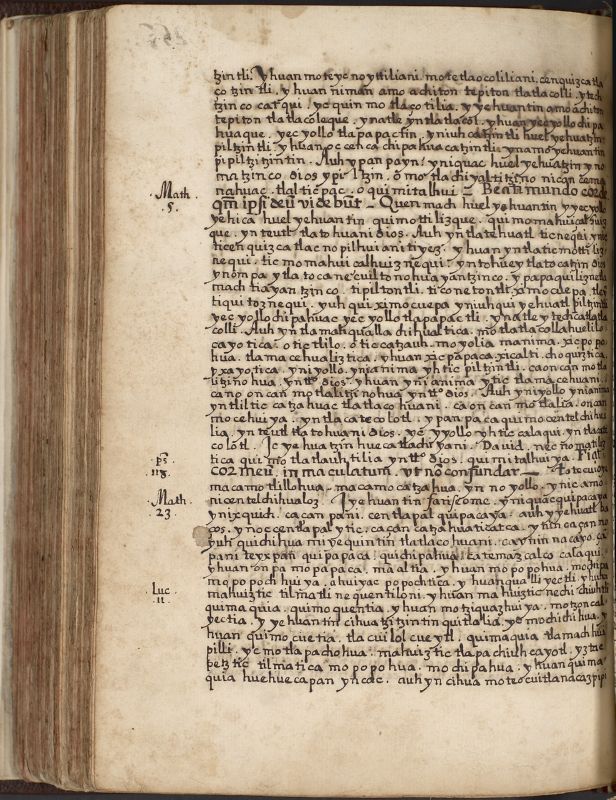 tzin tli. Yhuan mo teyc no yttiliani. mo te tla o co li liani. cen quiz ca tla
ço tzin tli. y huan niman amo achi ton tepi ton tla tla colli. y tech
tzin co cat qui. yc quin mo tla ço ti lia. y ye huan tin amo a chi ton
tepi ton tla tla co le que. y na tle yn tla tla col. y huan yec yollo chi pa
hua que. yec yollo tla pa pac tin. y niuh ca tzin tli huel yehuatzin
pil tzin tli. y huan oc cen ca chi pa hua ca tzin tli. yn a mo yehuan tin
pi pil tzi tzin tin. Auh y pan pa yn. yn iquac huel yehuatzin y no
ma tzin co. dios y pil tzin. o mo tla chi yal ti tzi no nican çema
nahuac. tlal tic pac. o qui mi tal hui. Beati mundo corde
Math. 5.
qm ipsi deu videbut. Quen mach huel yehuan tin y yec yollo
ye hi ca huel yehuan tin. qui mo tti liz que. qui mo ma hui cal huiz
que. yn teutl tla to huani dios. Auh yn tla te huatl tic nequi. ynic
ticen quiz ca tlac no pil hui ani ti yez. y huan yn tla tic mo tti liz
ne qui. tic mo ma hui cal huiz nequi. yn to huey tla to ca tzin dios
y nom pa y tla to ca ne cuil to no hua yan tzin co. y papa qui liz netla
mach tia yan tzin co. ti pil ton tli. ti co ne ton tli. xi mo cue pa. tla
ti qui toz ne qui. yuh qui xi mo cue pa y niuh qui y ehuatl pil tzin tli
yec yollo chi pahuac yec yollo tla pa pac tli. y na tle y tech ca tla tla
colli. Auh yn tla ma ti qualla chihual ti ca. mo tla tla colla huel ilo
ca yo ti ca. o tic tlilo. o tic ca tzauh. mo yolia m anima. xic po po
hua. tla ma ce hua liz ti ca. y huan xic pa pa ca. xi cal ti. cho quiz ti ca
y xa yo ti ca. yn i yollo. yn i anima yn tic pil tzin tli. ca on can mo tla
li tzi no hua. yn tt° dios. y huan yn i anima y tic tla ma ce huani.
ca no on can mo tla li tzi no hua yn tt° dios. Auh yn i yollo yn i anima
yn tlil tic ca tza huac tla tla co huani. ca on can mo tla lia. on can
mo ce hui ya. yn tla ca te co lotl. y pan pa ca qui mo cen tel chihui
lia. yn teutl tla to huani dios. yc y yollo yh tic ca la qui. yn tla cate
co lotl. Ic ye hua tzin hue ca tla chi yani. David.
ps. 118.
ti ca qui mo tla tlauh ti lia yn tt° dios. qui mi tal hui ya. Fiat
cor meu. in maculatum. ut no confundar. Totecuiyoe
ma ca mo tlil lo hua. ma ca mo ca tza hua. yn no yollo. ynic amo
ni cen tel chihualoz.
Math. 23.
I ye huan tin fariseome. yn iquac qui paca ya
y ni xi quich. ca çan pani. cen tla pal qui paca ya. auh y yehuatl ba
sos. y noc cen tla pal y tic. ca çan ca tza hua ti cat ca. y hin ca çan no
yuh qui chihua mi ye quin tin tla tla co huani. ca yhin no ca yo. ça
pani te yx pan qui pa paca. qui chi pa hua. ca temazcal co cala qui
yhuan on pa mo pa pa ca. m al tia. y huan mo po po hua.
mo po poch hui ya. a hui yac po poch ti ca. y huan qualli yec tli.
Luc. 11.
ma huiz tic tilmatli ne quen ti loni. y huan ma huiz tic ne chi chihualoni
qui ma quia. qui mo quen tia. y huan mo tzi quaz hui ya. mo tzon cal
yec tia. y ye huan tin cihua tzi tzin tin qui tla lia. yc mo chi chihua. y
huan qui mo cue tia. tla cui lol cue ytl. qui ma qui a tla mach hui
pilli. yc mo tla pacho hua. ma huiz tic tla pa chiuh ca yotl. yztac
petz tic tilma ti ca mo po po hua. mo chi pa hua. y huan qui ma
quia hue hue ca pan yn cac. auh yn cihua mo teo cuitla na caz pi pi